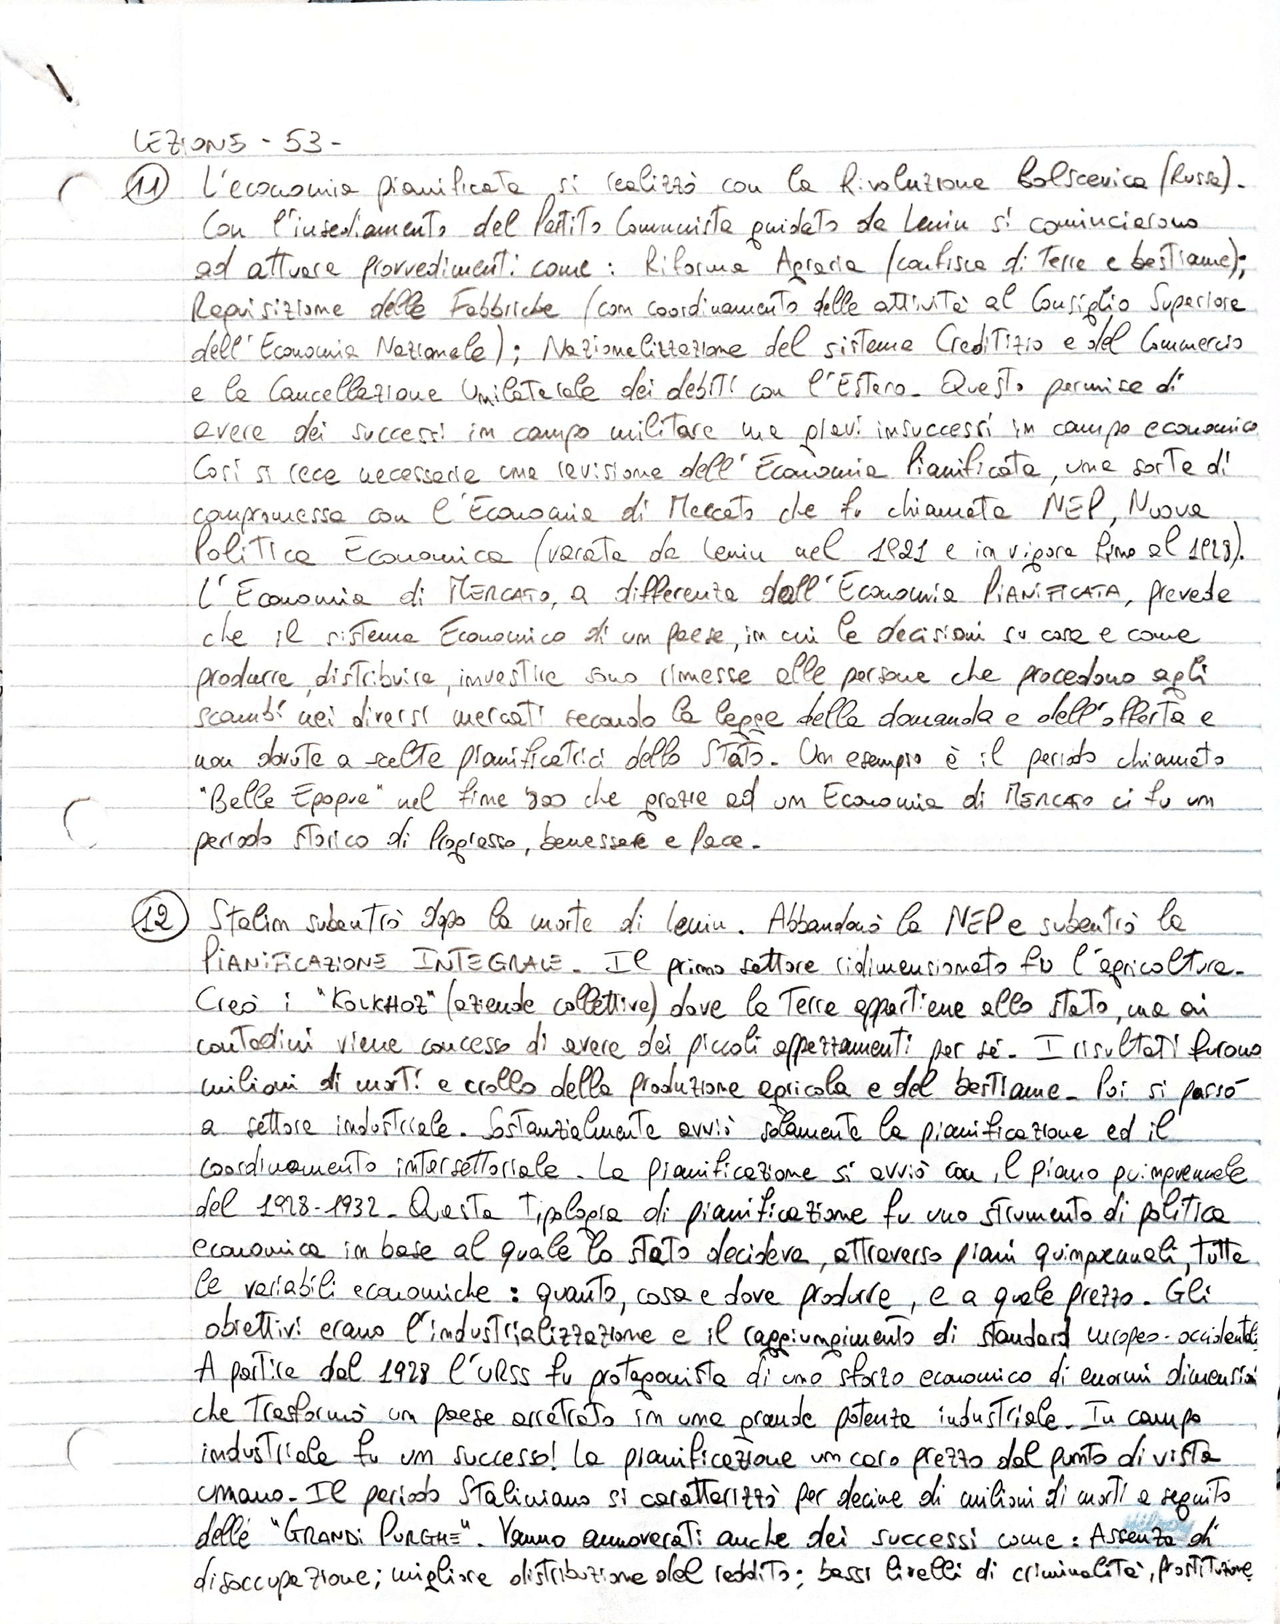 LEZIONE - 53 -
11 L'economia pianificata si realizzò con la Rivoluzione Bolscevica (Russa).
Con l'insediamento del Partito Comunista guidato da Lenin si cominciarono
ad attuare provvedimenti come: Riforma Agraria (confisca di Terre e bestiame);
Requisizione delle Fabbriche (con coordinamento delle attività al Consiglio Superiore
dell'Economia Nazionale); Nazionalizzazione del sistema Creditizio e del Commercio
e la Cancellazione Unilaterale dei debiti con l'Estero. Questo permise di
avere dei successi in campo militare ma gravi insuccessi in campo economico
Così si rece necessaria una revisione dell'Economia Pianificata, una sorta di
compromesso con l'Economia di Mercato che fu chiamata NEP, Nuova
Politica Economica (varata da Lenin nel 1921 e in vigore fino al 1928).
L'Economia di MERCATO, a differenza dell'Economia PIANIFICATA, prevede
che il sistema Economico di un paese, in cui le decisioni su cosa e come
produrre, distribuire, investire sono rimesse alle persone che procedono agli
scambi nei diversi mercati secondo la legge della domanda e dell'offerta e
non dovute a scelte pianificatrici dello Stato. Un esempio è il periodo chiamato
"Belle Epoque" nel fine '800 che grazie ad un Economia di MERCATO ci fu un
periodo storico di Progresso, benessere e Pace.
12 Stalin subentrò dopo la morte di Lenin. Abbandonò la NEP e subentrò la
PIANIFICAZIONE INTEGRALE. Il primo settore ridimensionato fu l'agricoltura.
Creò i "KOLKHOZ" (aziende collettive) dove la Terra appartiene allo stato, ma ai
contadini viene concesso di avere dei piccoli appezzamenti per sé. I risultati furono
milioni di morti e crollo della produzione agricola e del bestiame. Poi si passò
a settore industriale. Sostanzialmente avviò solamente la pianificazione ed il
coordinamento intersettoriale. La pianificazione si avviò con il piano quinquennale
del 1928-1932. Questa tipologia di pianificazione fu uno strumento di politica
economica in base al quale lo stato decideva, attraverso piani quinquennali, tutte
le variabili economiche: quanto, cosa e dove produrre, e a quale prezzo. Gli
obiettivi erano l'industrializzazione e il raggiungimento di standard europeo-occidentali
A partire dal 1928 l'URSS fu protagonista di uno sforzo economico di enormi dimensioni
che trasformò un paese arretrato in una grande potenza industriale. In campo
industriale fu un successo! La pianificazione un caro prezzo dal punto di vista
umano. Il periodo Staliniano si caratterizzò per decine di milioni di morti a seguito
delle "GRANDI PURGHE". Vanno annoverati anche dei successi come: Assenza di
disoccupazione; migliore distribuzione del reddito; bassi livelli di criminalità, prostituzione